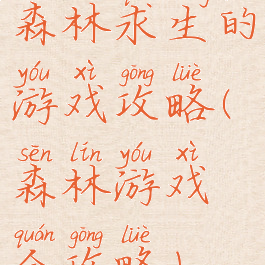 森林求生的
yóu xì gōng lüè
游戏攻略(
sēn lín yóu xì
森林游戏
quán gōng lüè
全攻略)